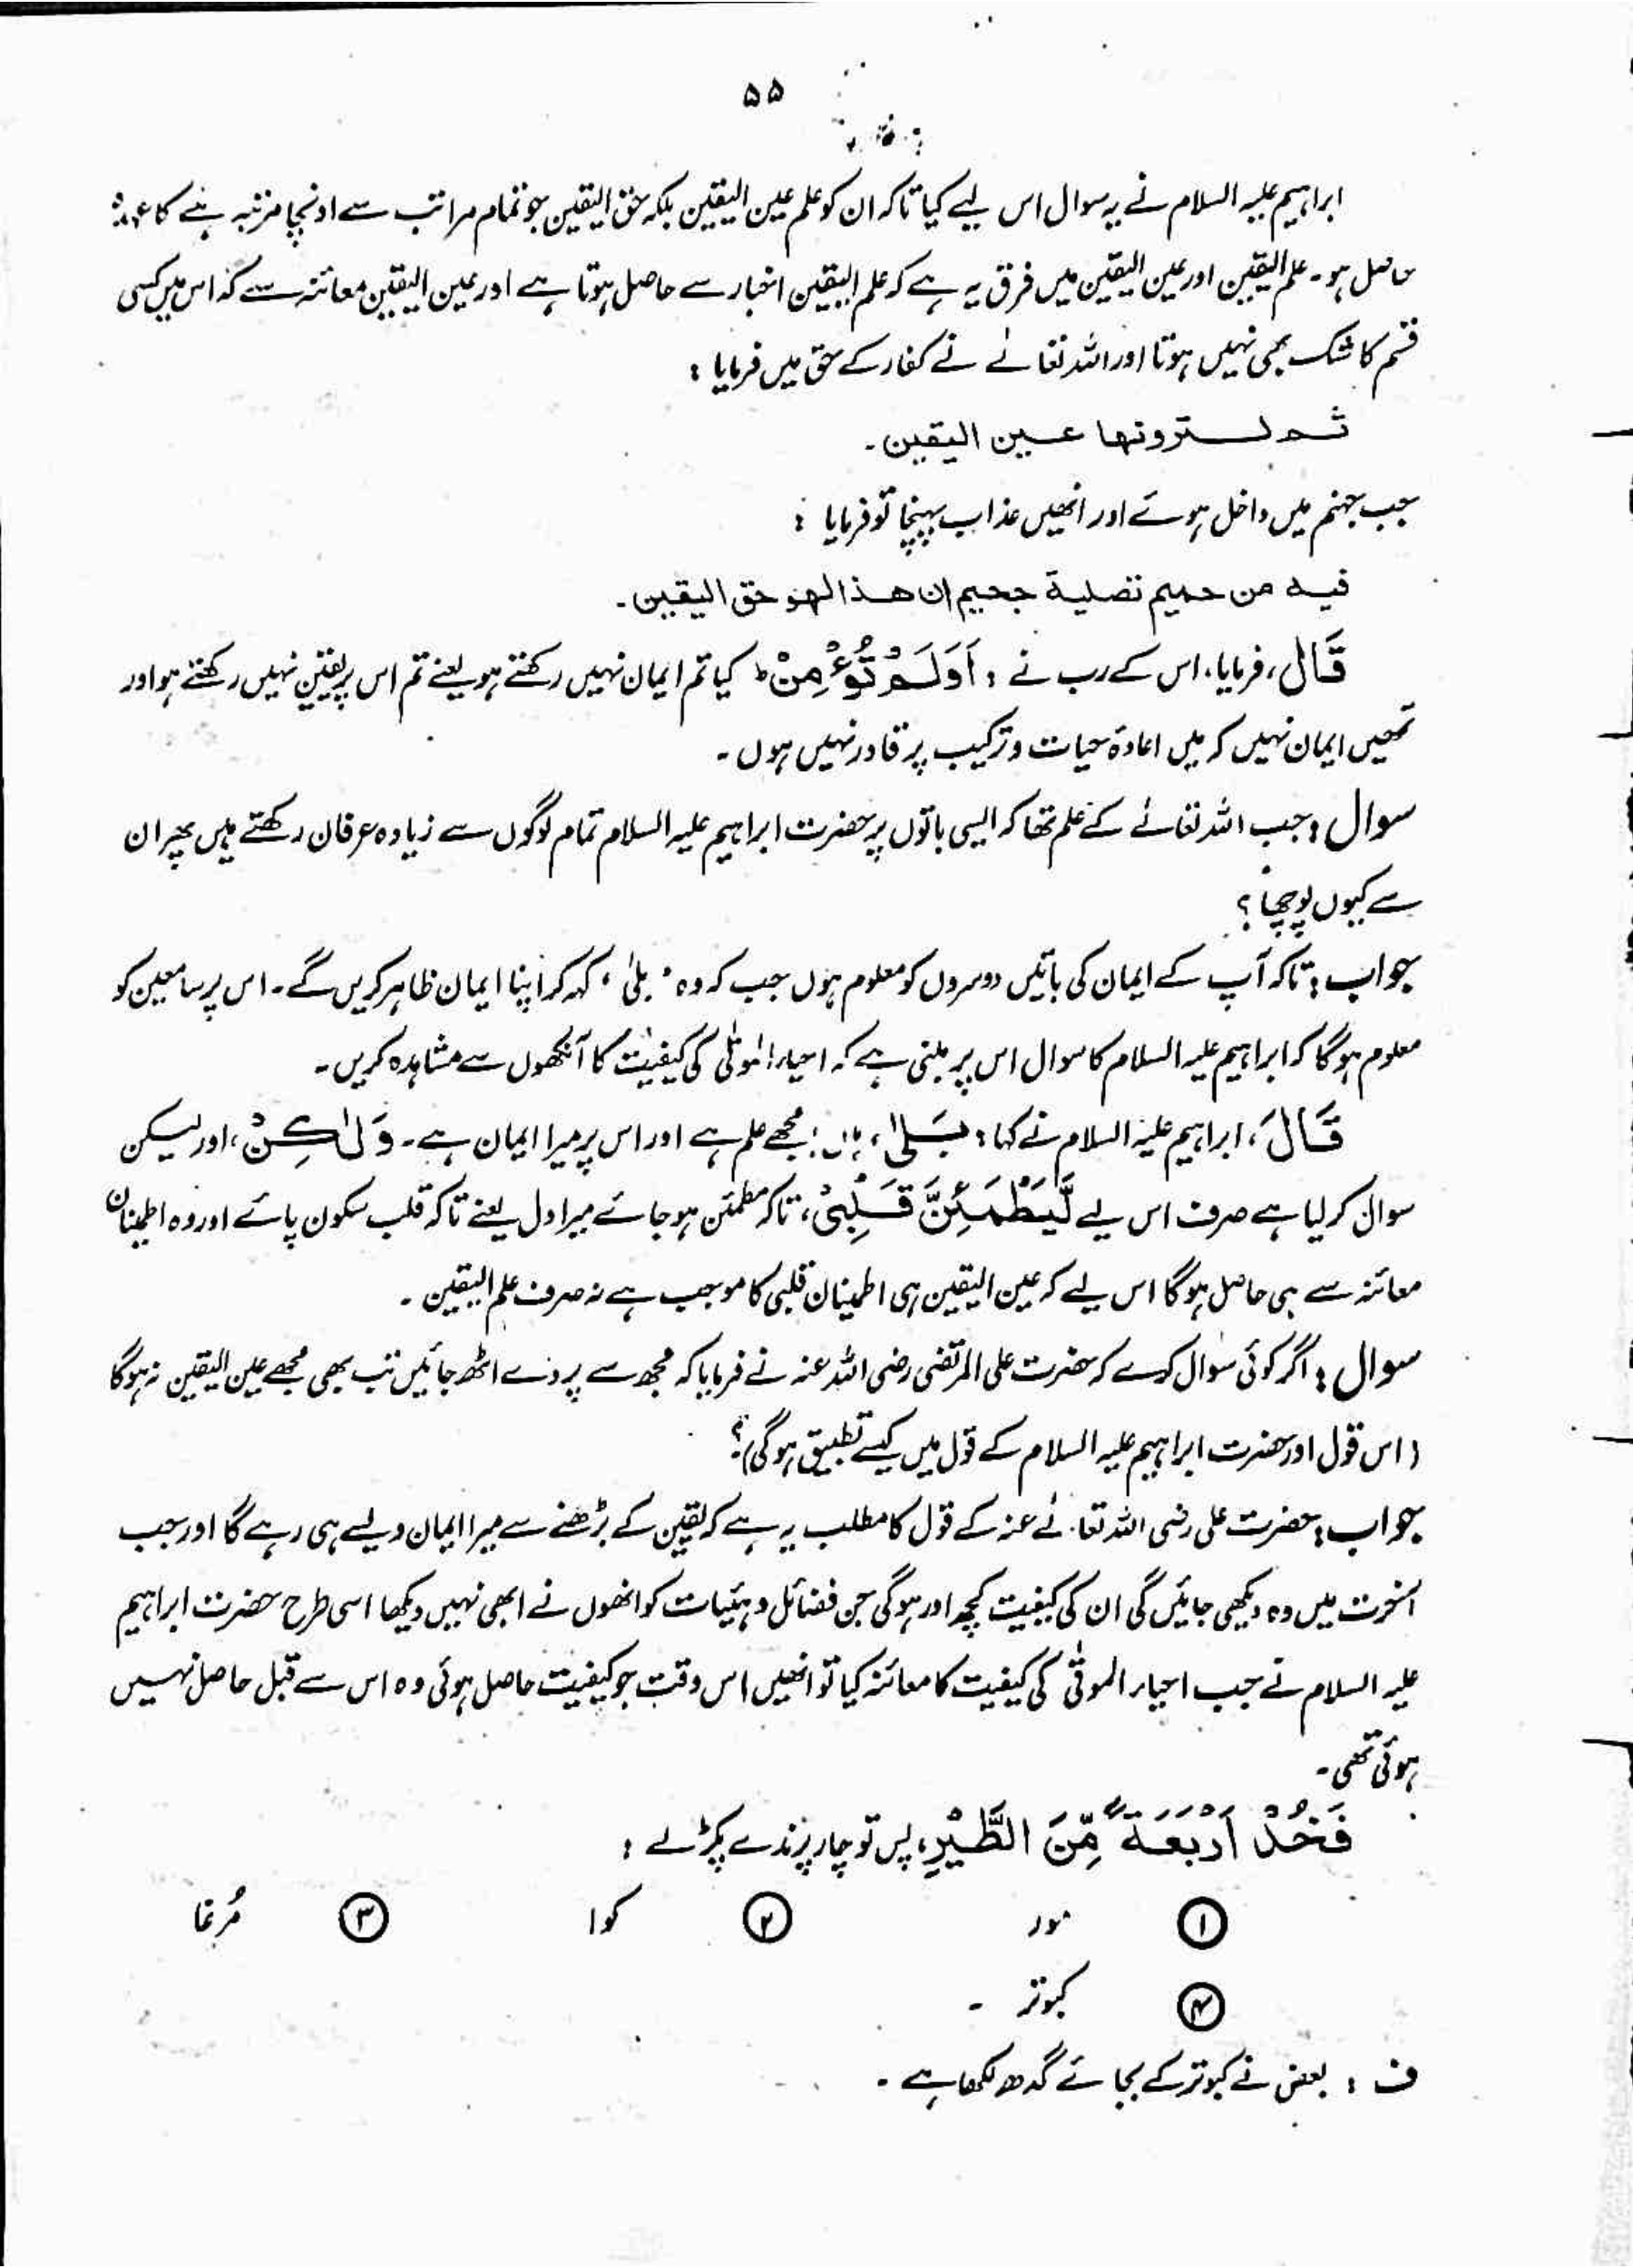 ۵۵
ابراہیم علیہ السلام نے یہ سوال اس لیے کیا تاکہ ان کو علم عین الیقین بلکہ حق الیقین جو تمام مراتب سے اونچا مرتبہ ہے کا
حاصل ہو۔ علم الیقین اور عین الیقین میں فرق یہ ہے کہ علم الیقین اخبار سے حاصل ہوتا ہے اور عین الیقین معائنہ سے کہ اس میں کسی
قسم کا شک بھی نہیں ہوتا اور اللہ تعالےٰ نے کفار کے حق میں فرمایا :
ثم لترونها عين اليقين۔
جب جہنم میں داخل ہوئے اور انھیں عذاب پہنچا تو فرمایا :
فيه من حميم تصلية جحيم ان هذا لهو حق اليقين۔
قَالَ، فرمایا، اس کے رب نے : اَوَلَمْ تُؤْمِنْ ط کیا تم ایمان نہیں رکھتے ہو یعنے تم اس پر یقین نہیں رکھتے ہو اور
تمھیں ایمان نہیں کہ میں اعادۂ حیات و ترکیب پر قادر نہیں ہوں۔
سوال : جب اللہ تعالےٰ کے علم تھا کہ ایسی باتوں پر حضرت ابراہیم علیہ السلام تمام لوگوں سے زیادہ عرفان رکھتے ہیں پھر ان
سے کیوں پوچھا ؟
جواب : تاکہ آپ کے ایمان کی باتیں دوسروں کو معلوم ہوں جب کہ وہ ' بلیٰ ' کہہ کر اپنا ایمان ظاہر کریں گے۔ اس پر سامعین کو
معلوم ہوگا کہ ابراہیم علیہ السلام کا سوال اس پر مبنی ہے کہ احیاء الموتیٰ کی کیفیت کا آنکھوں سے مشاہدہ کریں۔
قَالَ، ابراہیم علیہ السلام نے کہا : بَلٰی، ہاں ! مجھے علم ہے اور اس پر میرا ایمان ہے۔ وَلٰکِنْ، اور لیکن
سوال کر لیا ہے صرف اس لیے لِّیَطْمَئِنَّ قَلْبِیْ، تاکہ مطمئن ہو جائے میرا دل یعنے تاکہ قلب سکون پائے اور وہ اطمینان
معائنہ سے ہی حاصل ہوگا اس لیے کہ عین الیقین ہی اطمینان قلبی کا موجب ہے نہ صرف علم الیقین ۔
سوال : اگر کوئی سوال کرے کہ حضرت علی المرتضیٰ رضی اللہ عنہ نے فرمایا کہ مجھ سے پردے اٹھ جائیں تب بھی مجھے عین الیقین نہ ہوگا
(اس قول اور حضرت ابراہیم علیہ السلام کے قول میں کیسے تطبیق ہوگی)؟
جواب : حضرت علی رضی اللہ تعالےٰ عنہ کے قول کا مطلب یہ ہے کہ یقین کے بڑھنے سے میرا ایمان ویسے ہی رہے گا اور جب
آخرت میں وہ دیکھی جائیں گی ان کی کیفیت کچھ اور ہوگی جن فضائل و ہئیات کو انھوں نے ابھی نہیں دیکھا اسی طرح حضرت ابراہیم
علیہ السلام نے جب احیاء الموتیٰ کی کیفیت کا معائنہ کیا تو انھیں اس وقت جو کیفیت حاصل ہوئی وہ اس سے قبل حاصل نہیں
ہوئی تھی۔
فَخُذْ اَرْبَعَةً مِّنَ الطَّيْرِ، پس تو چار پرندے پکڑ لے :
① مور ② کوا ③ مُرغا
④ کبوتر ۔
ف : بعض نے کبوتر کے بجائے گدھ لکھا ہے ۔